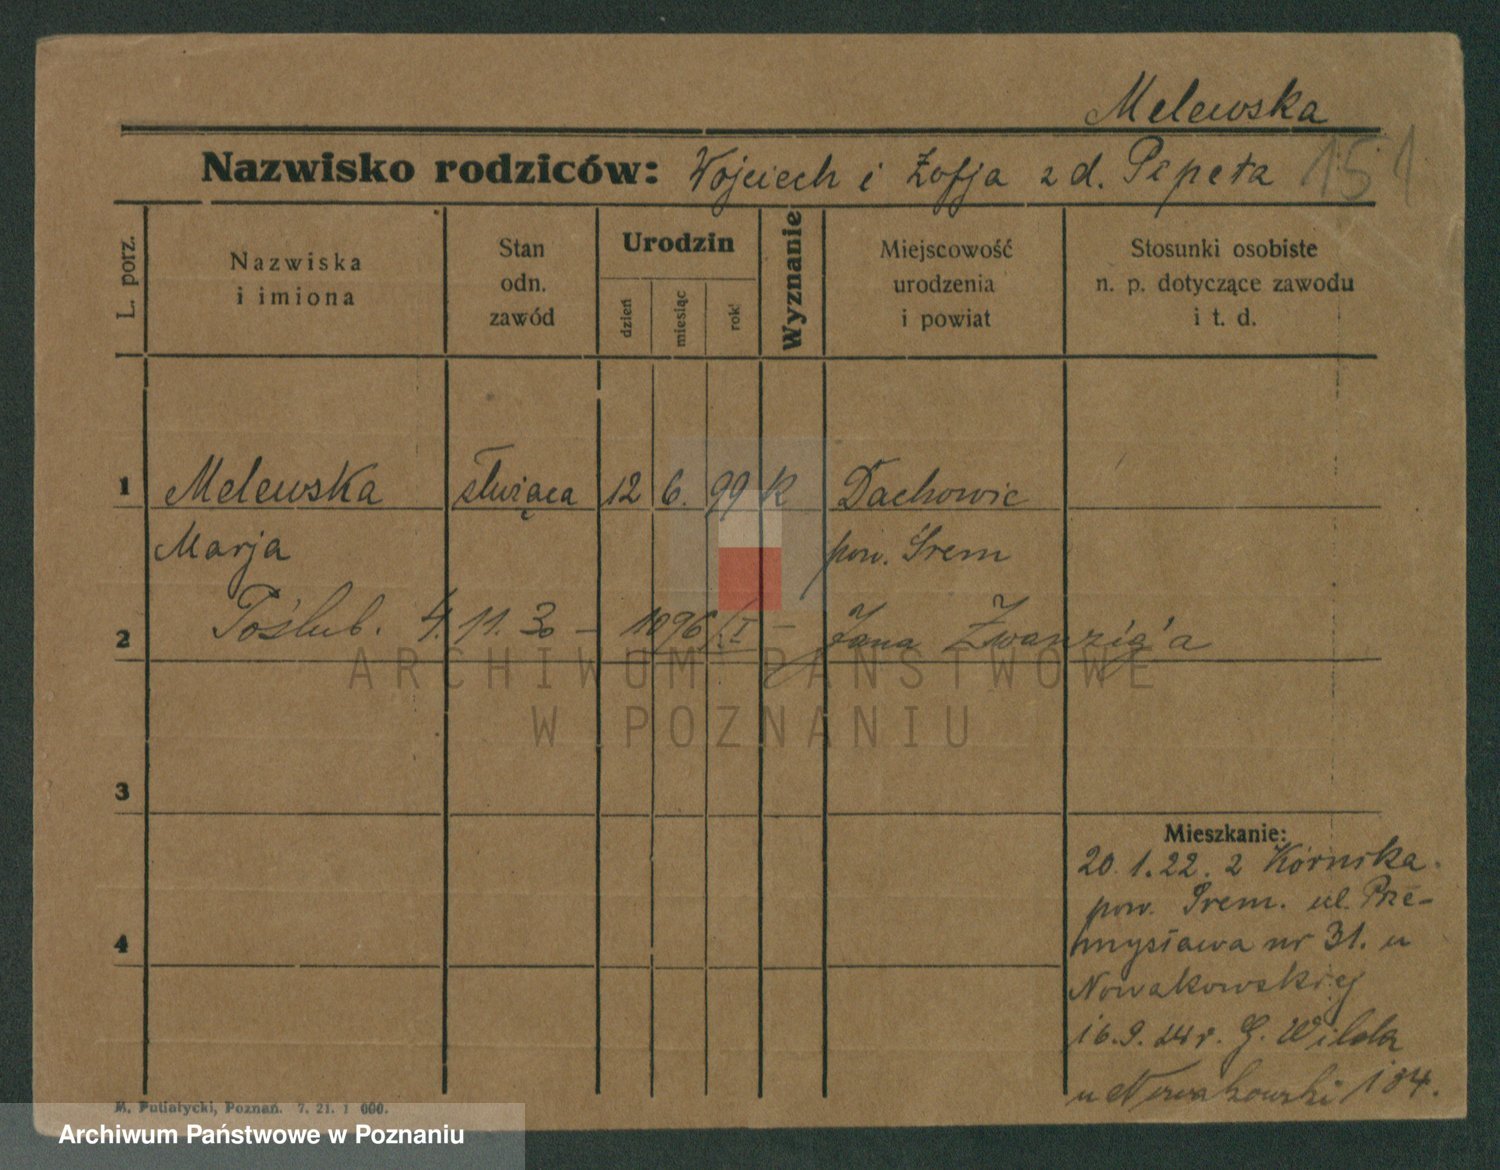 Melewska
Nazwisko rodziców: Wojciech i Zofja z d. Pepeta 151
L. porz.
Nazwiska i imiona
Stan odn. zawód
Urodzin
dzień
miesiąc
rok
Wyznanie
Miejscowość urodzenia i powiat
Stosunki osobiste n. p. dotyczące zawodu i t. d.
1 Melewska służąca 12 6. 99 K Dachowic
Marja pow. Śrem
2 Poślub. 4. 11. 30 – 1096 – Jana Zwanzig'a
ARCHIWUM PAŃSTWOWE
W POZNANIU
3
Mieszkanie:
20.1.22. z Kórnika
pow. Śrem. ul. Prze-
4
mysława nr 31. u
Nowakowskiej
16.9.24r. G. Wilda
u Nowakowski 104.
M. Putiatycki, Poznań. 7. 21. 1 000.
Archiwum Państwowe w Poznaniu